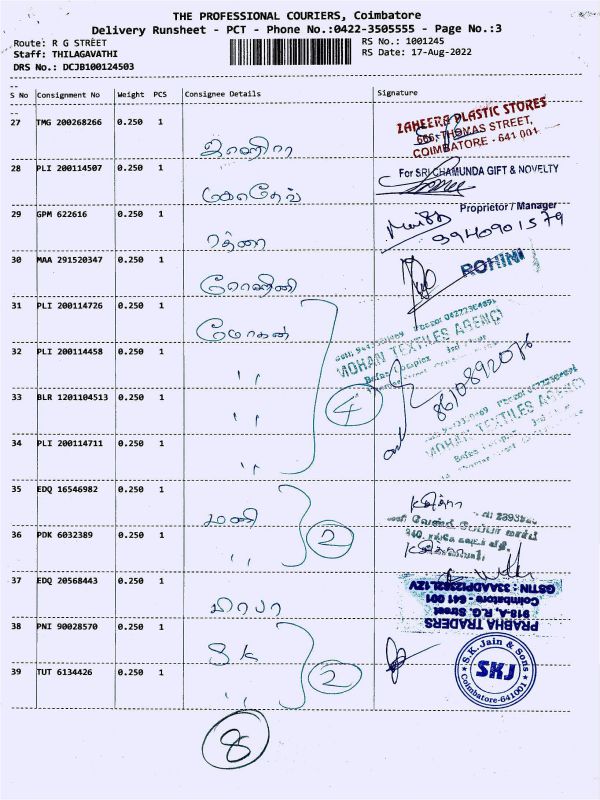 THE PROFESSIONAL COURIERS, Coimbatore
Delivery Runsheet - PCT - Phone No.:0422-3505555 - Page No.:3
Route: R G STREET
RS No.: 1001245
Staff: THILAGAVATHI
RS Date: 17-Aug-2022
DRS No.: DCJB100124503
S No Consignment No Weight PCS Consignee Details Signature
27 TMG 200268266 0.250 1
ZAHEERA PLASTIC STORES
666, THOMAS STREET,
COIMBATORE - 641 001
ஜாஹிரா
28 PLI 200114507 0.250 1
For SRI CHAMUNDA GIFT & NOVELTY
மகாதேவ்
Proprietor / Manager
29 GPM 622616 0.250 1
9940901579
ரத்னா
30 MAA 291520347 0.250 1
ROHINI
ரோஹினி
31 PLI 200114726 0.250 1
மோகன்
MOHAN TEXTILES AGENCY
32 PLI 200114458 0.250 1
,,
8610892076
33 BLR 1201104513 0.250 1
,,
4
MOHAN TEXTILES AGENCY
34 PLI 200114711 0.250 1
,,
35 EDQ 16546982 0.250 1
மணி
36 PDK 6032389 0.250 1
,,
2
37 EDQ 20568443 0.250 1
பிரபா
PRABHA TRADERS
918-A, R.G. Street
Coimbatore - 641 001
38 PNI 90028570 0.250 1
S.K
S.K. Jain & Sons
SKJ
Coimbatore-641001
39 TUT 6134426 0.250 1
,,
2
8